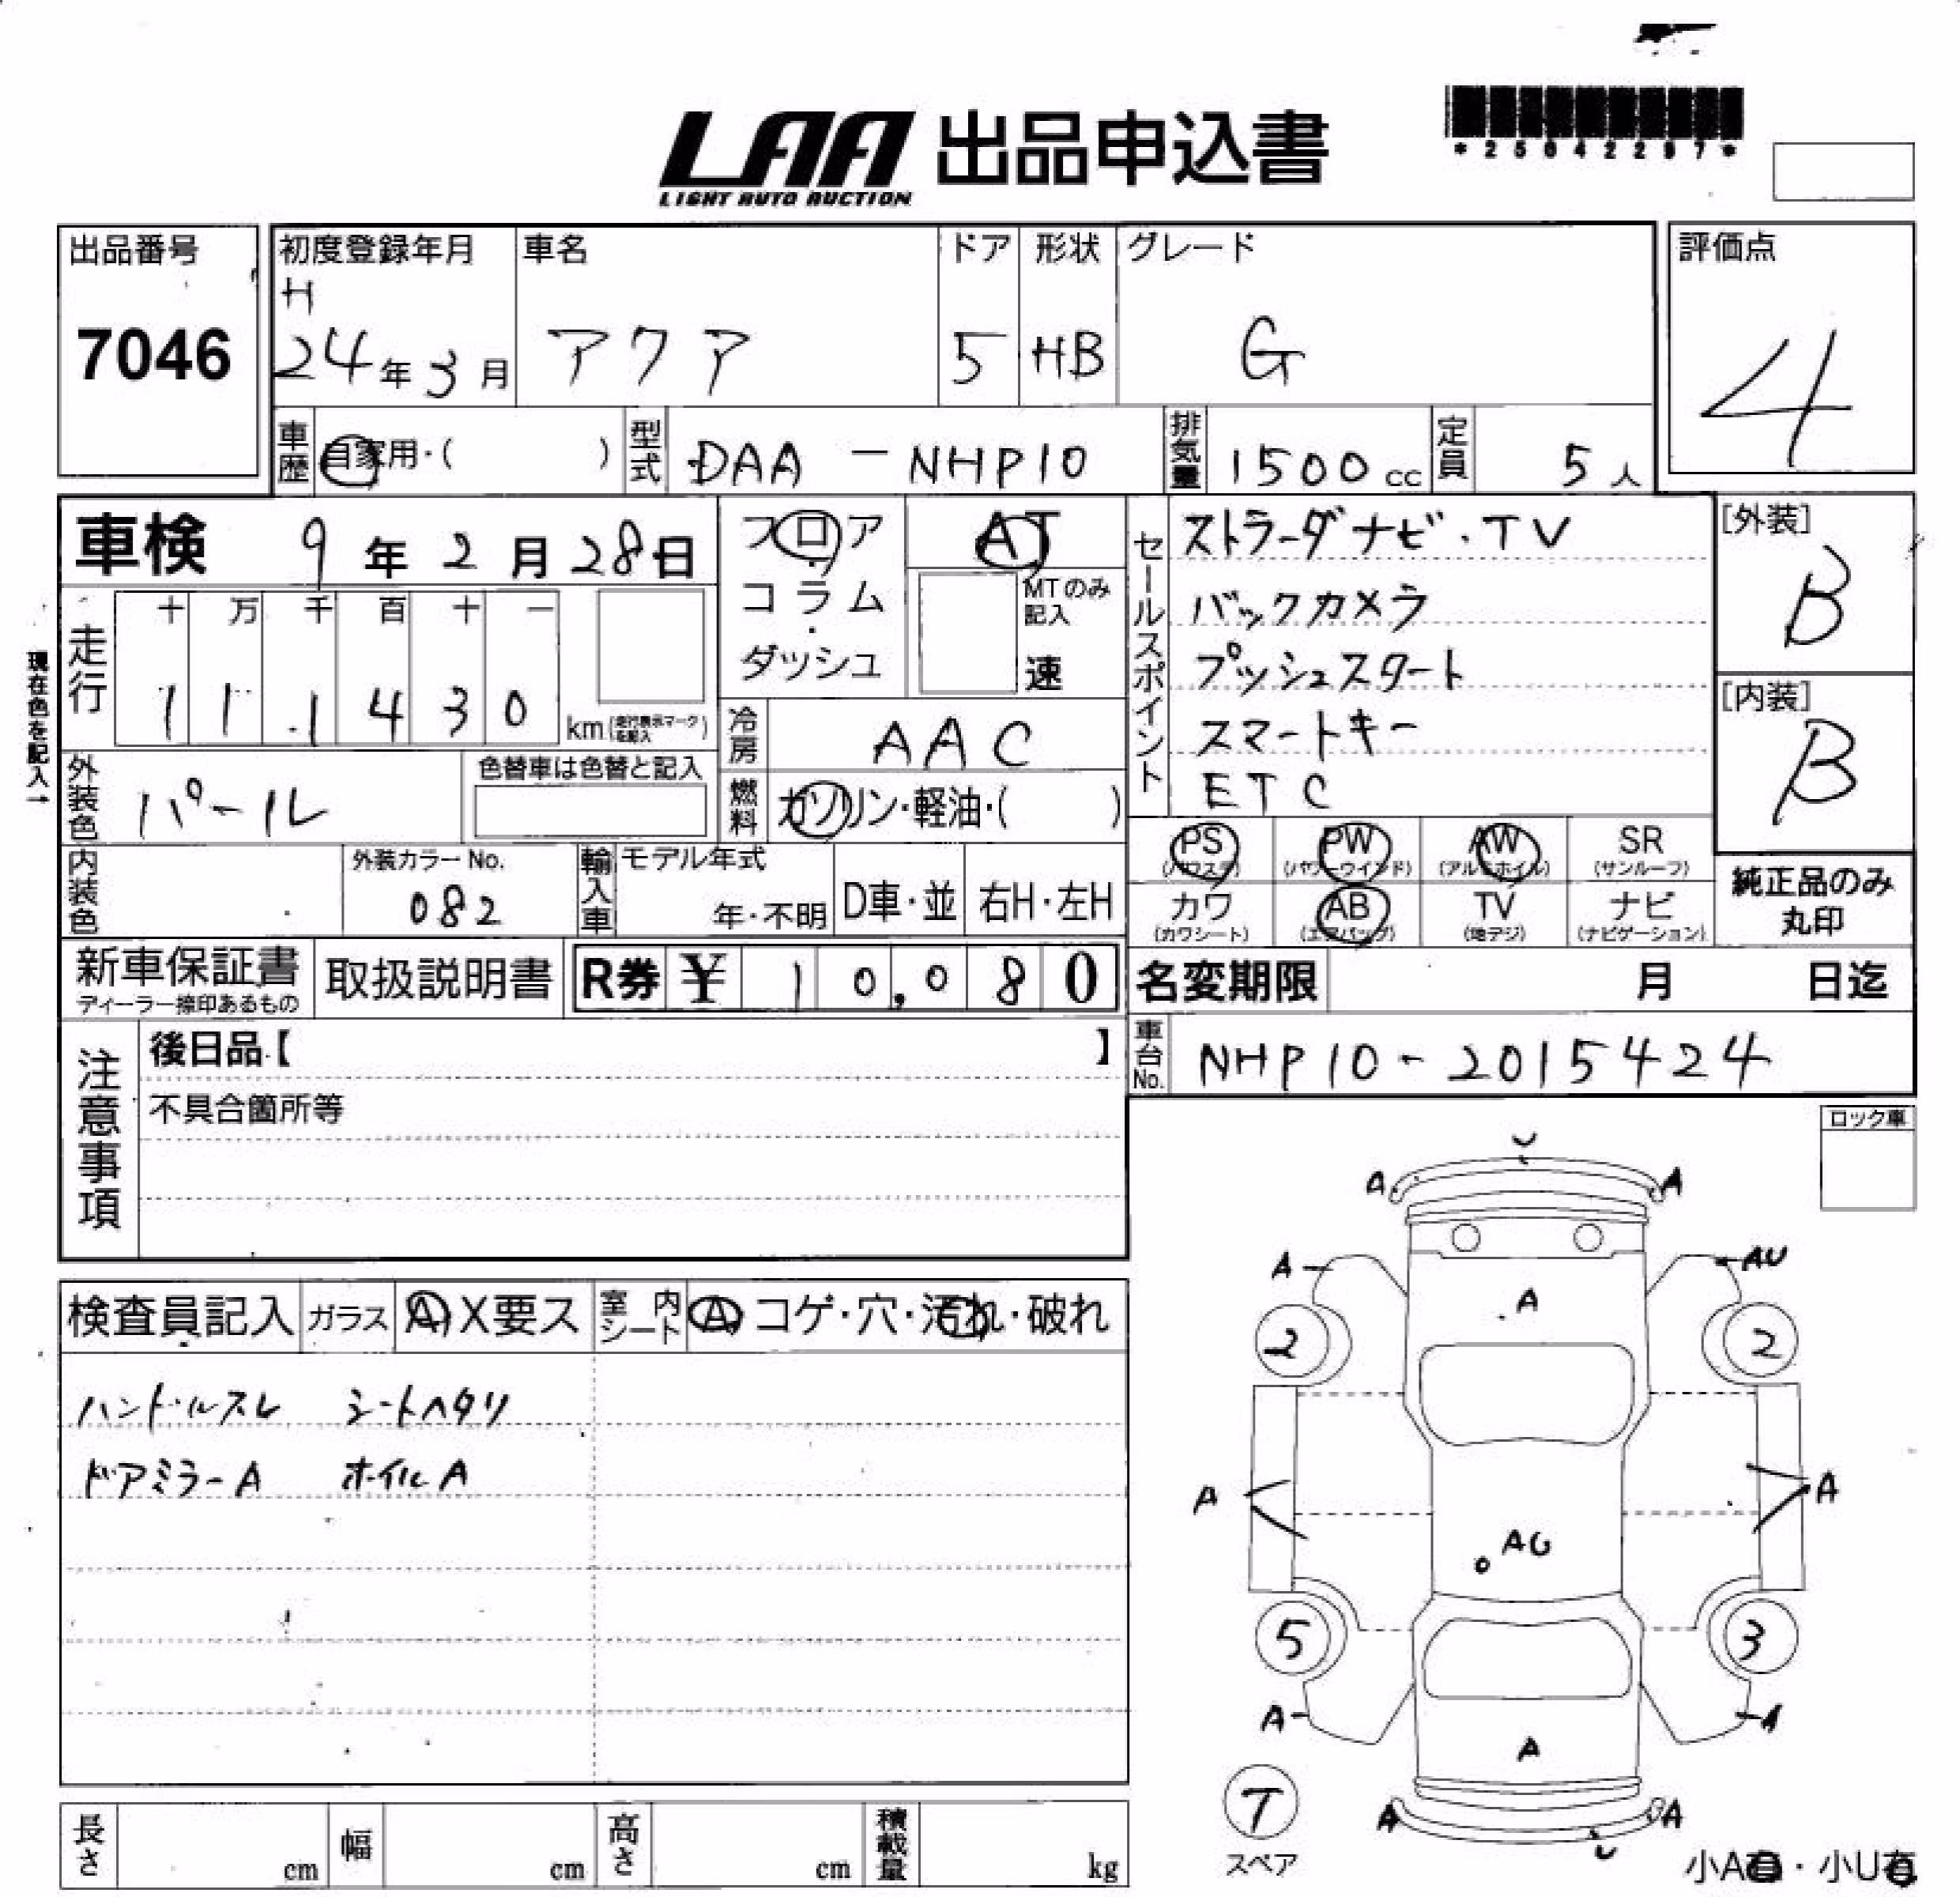 LAA 出品申込書
LIGHT AUTO AUCTION
*25042297*
出品番号
7046
初度登録年月
H
24年3月
車名
アクア
ドア
5
形状
HB
グレード
G
評価点
4
車歴
自家用・( )
型式
DAA - NHP10
排気量
1500cc
定員
5人
車検 9年2月28日
フロア
・
コラム
・
ダッシュ
AT
MTのみ記入
速
現在色を記入→
走行
十 万 千 百 十 一
1 1 1 4 3 0
km(走行表示マークを記入)
冷房
AAC
外装色
パール
色替車は色替と記入
燃料
ガソリン・軽油・( )
内装色
外装カラーNo.
082
輸入車
モデル年式
年・不明
D車・並
右H・左H
セールスポイント
ストラーダナビ・TV
バックカメラ
プッシュスタート
スマートキー
ETC
[外装]
B
[内装]
B
PS
(パワステ)
PW
(パワーウインド)
AW
(アルミホイル)
SR
(サンルーフ)
カワ
(カワシート)
AB
(エアバッグ)
TV
(地デジ)
ナビ
(ナビゲーション)
純正品のみ
丸印
新車保証書
ディーラー捺印あるもの
取扱説明書
R券 ¥ 10,080
名変期限 月 日迄
車台No.
NHP10-2015424
注意事項
後日品【 】
不具合箇所等
ロック車
検査員記入
ガラス
A X要ス
室内シート
A コゲ・穴・汚れ・破れ
ハンドルスレ シートヘタリ
ドアミラーA ホイルA
U
A A
A AU
A
2 2
A A
AG
5 3
A A
A
T
スペア
A A
U
小A有・小U有
長さ cm
幅 cm
高さ cm
積載量 kg